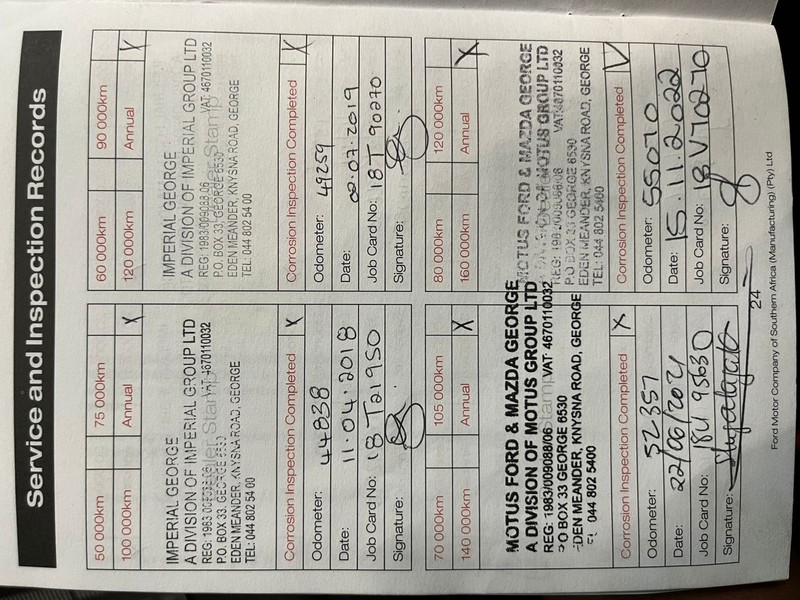 Service and Inspection Records
50 000km
75 000km
100 000km
Annual X
IMPERIAL GEORGE
A DIVISION OF IMPERIAL GROUP LTD
VAT: 4670110032
P.O. BOX 33, GEORGE 6530
EDEN MEANDER, KNYSNA ROAD, GEORGE
TEL: 044 802 54 00
Corrosion Inspection Completed X
Odometer: 44838
Date: 11.04.2018
Job Card No: 18T21950
Signature:
60 000km
90 000km
120 000km
Annual X
IMPERIAL GEORGE
A DIVISION OF IMPERIAL GROUP LTD
REG: 1983/009088/06 VAT: 4670110032
P.O. BOX 33, GEORGE 6530
EDEN MEANDER, KNYSNA ROAD, GEORGE
TEL: 044 802 54 00
Corrosion Inspection Completed X
Odometer: 49259
Date: 08.07.2019
Job Card No: 18T90270
Signature:
70 000km
105 000km
140 000km
Annual X
MOTUS FORD & MAZDA GEORGE
A DIVISION OF MOTUS GROUP LTD
REG: 1983/009088/06 VAT: 4670110032
PO BOX 33 GEORGE 6530
EDEN MEANDER, KNYSNA ROAD, GEORGE
044 802 5400
Corrosion Inspection Completed X
Odometer: 52357
Date: 22/06/2021
Job Card No: 18U95630
Signature:
80 000km
120 000km
160 000km
Annual X
MOTUS FORD & MAZDA GEORGE
MOTUS GROUP LTD
P.O BOX 33 GEORGE 6530
EDEN MEANDER, KNYSNA ROAD, GEORGE
TEL: 044 802 5400
Corrosion Inspection Completed V
Odometer: 55070
Date: 15.11.2022
Job Card No: 18V70270
Signature:
24
Ford Motor Company of Southern Africa (Manufacturing) (Pty) Ltd